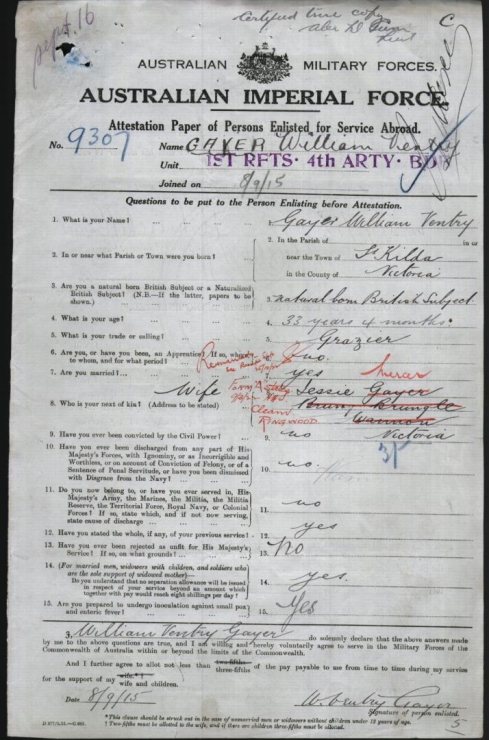 Sept. 16
Certified true copy
C
AUSTRALIAN MILITARY FORCES.
AUSTRALIAN IMPERIAL FORCE.
Attestation Paper of Persons Enlisted for Service Abroad.
No. 9307 Name GAYER William Ventry
Unit 1ST RFTS. 4th ARTY. BDE
Joined on 8/9/15
Questions to be put to the Person Enlisting before Attestation.
1. What is your Name? ... ... ... Gayer William Ventry
2. In or near what Parish or Town were you born? ... 2. In the Parish of in or
near the Town of St Kilda
in the County of Victoria
3. Are you a natural born British Subject or a Naturalized British Subject? (N.B.—If the latter, papers to be shown.) 3. natural born British Subject
4. What is your age? ... ... 4. 33 years 4 months
5. What is your trade or calling? ... 5. Grazier
6. Are you, or have you been, an Apprentice? If so, where, to whom, and for what period? 6. no.
7. Are you married? ... 7. yes
8. Who is your next of kin? (Address to be stated) Wife Jessie Gayer
RINGWOOD
Victoria
9. Have you ever been convicted by the Civil Power? ... 9. no
10. Have you ever been discharged from any part of His Majesty's Forces, with Ignominy, or as Incorrigible and Worthless, or on account of Conviction of Felony, or of a Sentence of Penal Servitude, or have you been dismissed with Disgrace from the Navy? 10. no.
11. Do you now belong to, or have you ever served in, His Majesty's Army, the Marines, the Militia, the Militia Reserve, the Territorial Force, Royal Navy, or Colonial Forces? If so, state which, and if not now serving, state cause of discharge 11. no
12. Have you stated the whole, if any, of your previous service? 12. yes
13. Have you ever been rejected as unfit for His Majesty's Service? If so, on what grounds? 13. No
14. (For married men, widowers with children, and soldiers who are the sole support of widowed mother)—
Do you understand that no separation allowance will be issued in respect of your service beyond an amount which together with pay would reach eight shillings per day? 14. yes.
15. Are you prepared to undergo inoculation against small pox and enteric fever? 15. Yes
I, William Ventry Gayer do solemnly declare that the above answers made
by me to the above questions are true, and I am willing and hereby voluntarily agree to serve in the Military Forces of the
Commonwealth of Australia within or beyond the limits of the Commonwealth.
And I further agree to allot not less than two-fifths three-fifths of the pay payable to me from time to time during my service
for the support of my wife wife and children.
Date 8/9/15 W. Ventry Gayer
Signature of person enlisted.
5
*This clause should be struck out in the case of unmarried men or widowers without children under 18 years of age.
† Two-fifths must be allotted to the wife, and if there are children three-fifths must be allotted.